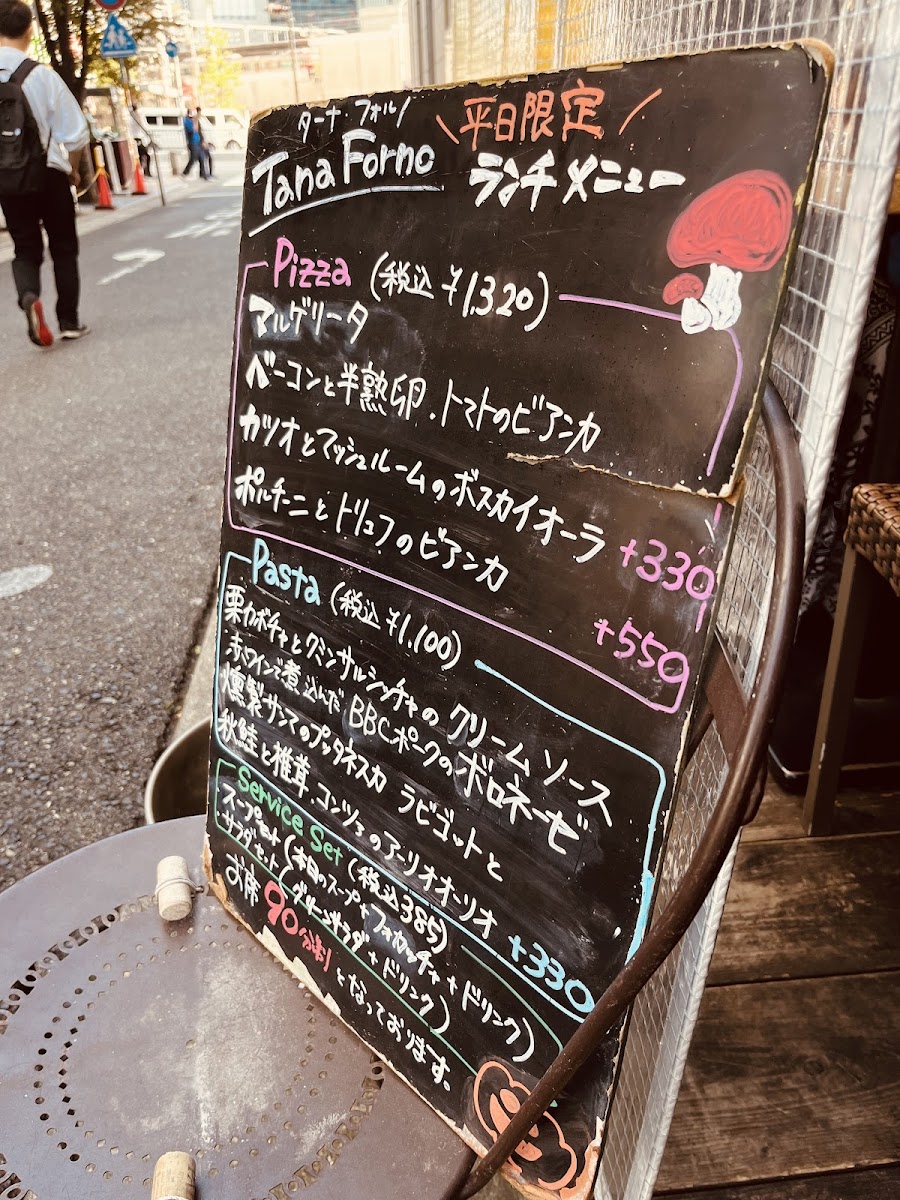 ターナ・フォルノ
Tana Forno
\平日限定/
ランチメニュー
Pizza (税込 ¥1,320)
マルゲリータ
ベーコンと半熟卵・トマトのビアンカ
カツオとマッシュルームのボスカイオーラ +330
ポルチーニとトリュフのビアンカ +550
Pasta (税込 ¥1,100)
栗カボチャとクミンサルシッチャのクリームソース
赤ワインで煮込んだ BBCポークのボロネーゼ
燻製サンマのプッタネスカ ラビゴットと
秋鮭と椎茸、コンソメのアーリオオーリオ +330
Service Set (税込385)
スープセット (本日のスープ + フォカッチャ + ドリンク)
サラダセット (グリーンサラダ + ドリンク)
お席 90分制 となっております。